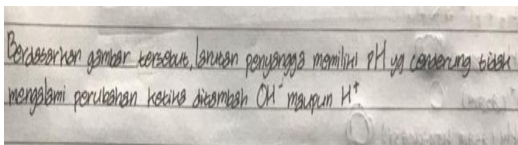 Berdasarkan gambar tersebut, larutan penyangga memiliki pH yg cenderung tidak
mengalami perubahan ketika ditambah OH⁻ maupun H⁺